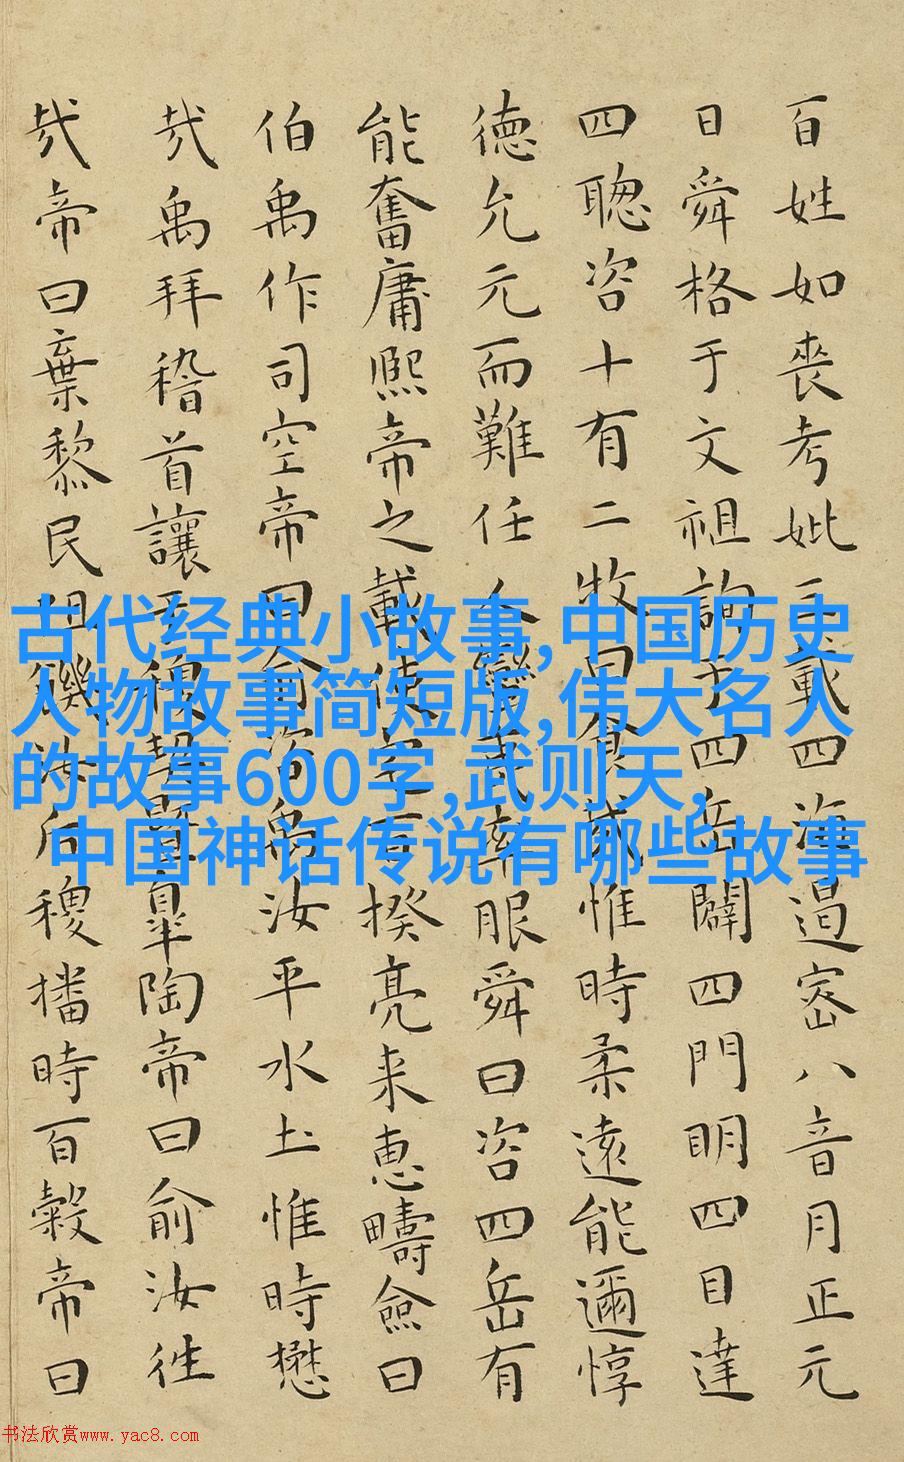 百姓如喪考妣三載四海遏密八音月正元
日舜格于文祖詢于四岳闢四門明四目達
四聰咨十有二牧曰食哉惟時柔遠能邇惇
德允元而難任人蠻夷率服舜曰咨四岳有
能奮庸熙帝之載使宅百揆亮来惠疇僉曰
伯禹作司空帝曰俞咨禹汝平水土惟時懋
哉禹拜稽首讓于稷契暨皐陶帝曰俞汝往
哉帝曰棄黎民阻饑汝后稷播時百穀帝曰
古代经典小故事,中国历史
人物故事简短版,伟大名人
的故事600字,武则天,
中国神话传说有哪些故事
书法欣赏www.yac8.com